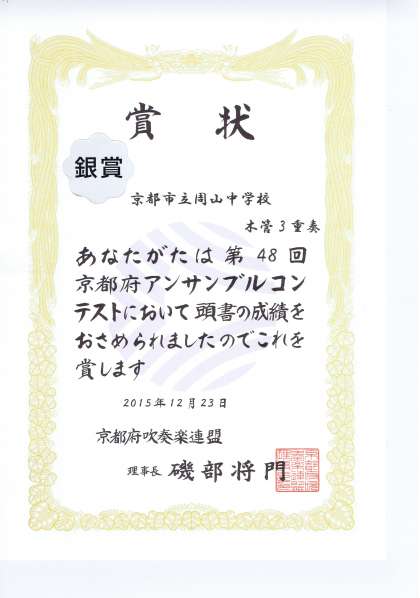 賞状
銀賞
京都市立周山中学校
木管3重奏
あなたがたは第48回
京都府アンサンブルコン
テストにおいて頭書の成績を
おさめられましたのでこれを
賞します
2015年12月23日
京都府吹奏楽連盟
理事長 磯部将門